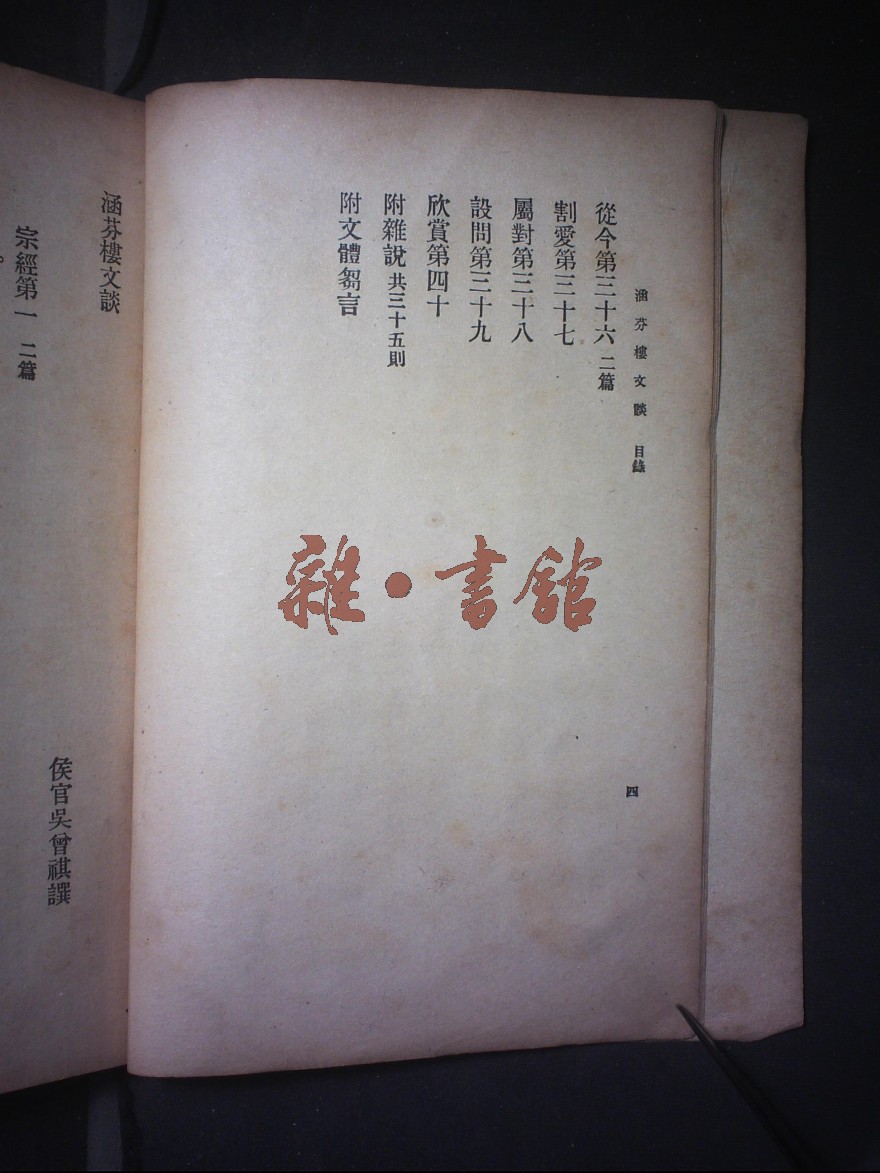 涵芬樓文談 目錄
四
從今第三十六 二篇
割愛第三十七
屬對第三十八
設問第三十九
欣賞第四十
附雜說 共三十五則
附文體芻言
雜·書館
涵芬樓文談
侯官吳曾祺譔
宗經第一 二篇